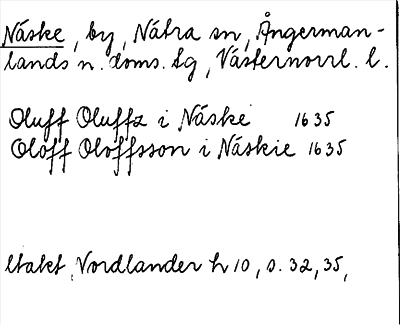 Näske, by, Nätra sn, Ångerman-
lands n. doms. tg, Västernorrl. l.
Oluff Oluffz i Näske 1635
Oloff Oloffsson i Näskie 1635
Utakt. Nordlander h 10, s. 32, 35,